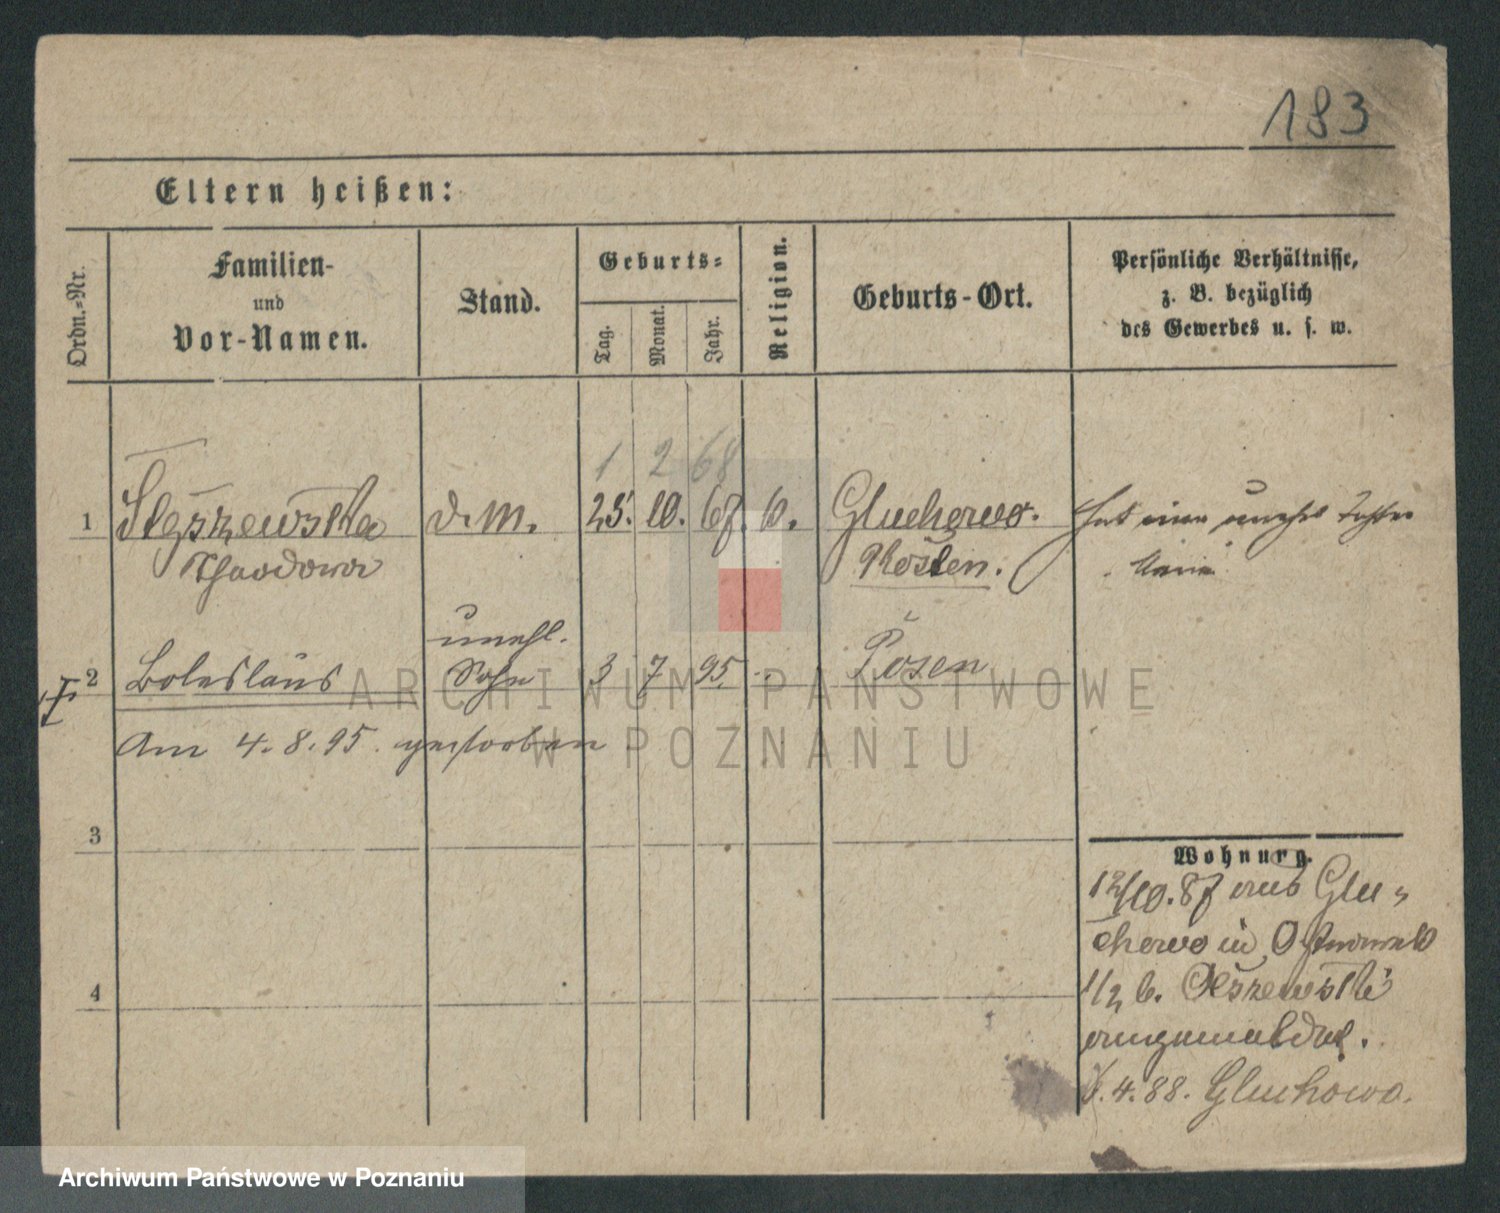 183
Eltern heißen:
Ordn.-Nr.
Familien-
und
Vor-Namen.
Stand.
Geburts-
Tag.
Monat.
Jahr.
Religion.
Geburts-Ort.
Persönliche Verhältnisse,
z. B. bezüglich
des Gewerbes u. s. w.
1 2 68
1 Stęszewska d. M. 25. 10. 67. Gluchowo. hat eine unehel Tochter
Theodora Kosten.
unehl.
2 Boleslaus Sohn 3 7 95. Posen
Am 4. 8. 95. gestorben
3
Wohnung.
12/10. 87 aus Glu-
chowo in
4
1/2 b.
angemeldet.
4. 88. Gluchowo.
ARCHIWUM PAŃSTWOWE
W POZNANIU
Archiwum Państwowe w Poznaniu